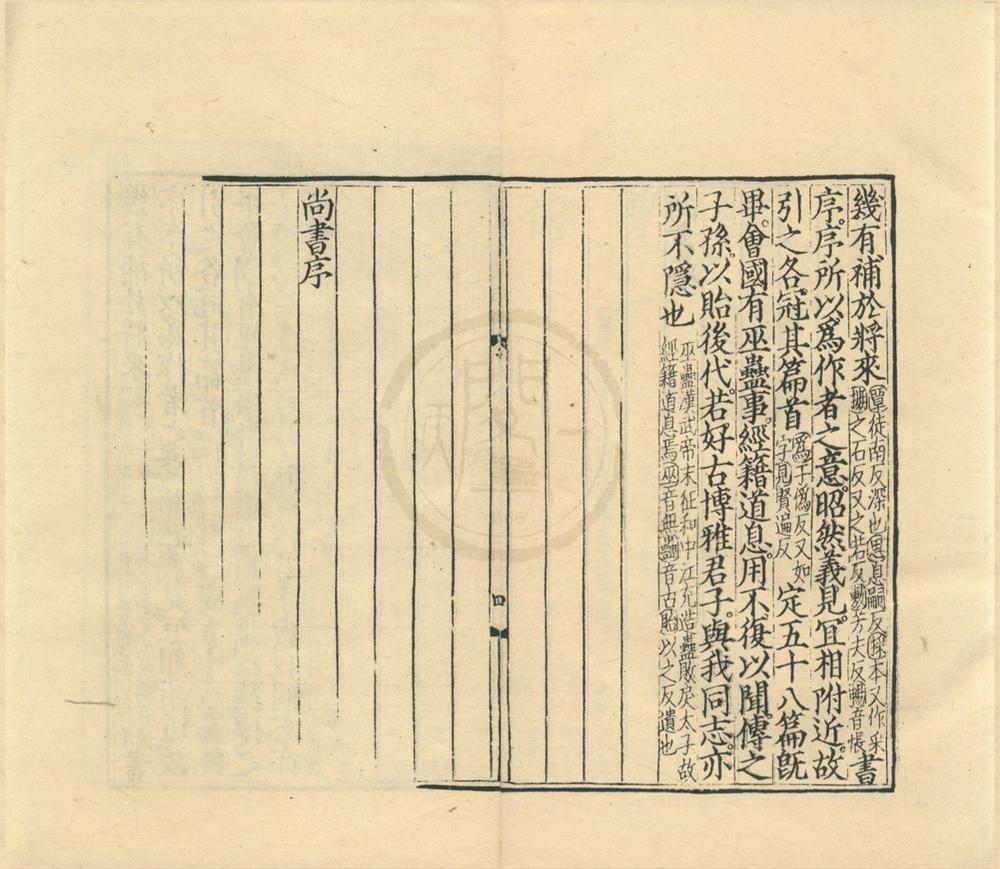 幾有補於將來覃徒南反深也思息嗣反採本又作采摭之石反又之若反敷芳夫反暢音悵書
序。序所以爲作者之意。昭然義見。冝相附近。故
引之各冠其篇首爲于僞反又如字見賢遍反定五十八篇旣
畢。會國有巫蠱事。經籍道息。用不復以聞。傳之
子孫。以貽後代。若好古博雅君子。與我同志。亦
所不隱也巫蠱漢武帝末征和中江充造蠱敗戾太子故經籍道息焉巫音無蠱音古貽以之反遺也
四
尚書序